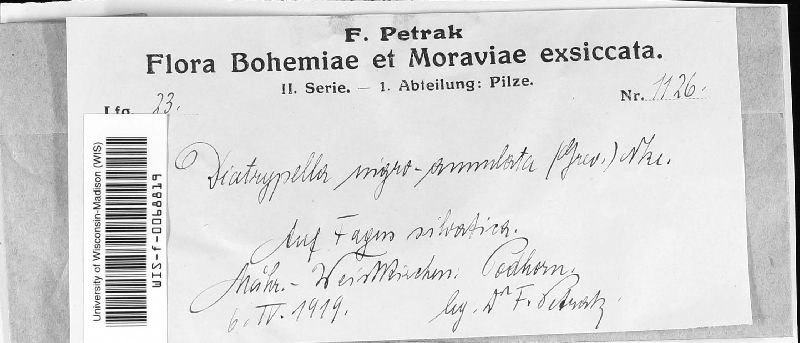 F. Petrak
Flora Bohemiae et Moraviae exsiccata.
II. Serie. — 1. Abteilung: Pilze.
Lfg. 23. Nr. 1126.
Diatrypella nigro-annulata (Grev.) Nke.
Auf Fagus silvatica.
Mähr.-Weisskirchen: Podhorn.
6. IV. 1919. leg. Dr F. Petrak.
University of Wisconsin-Madison (WIS)
WIS-f-0068819